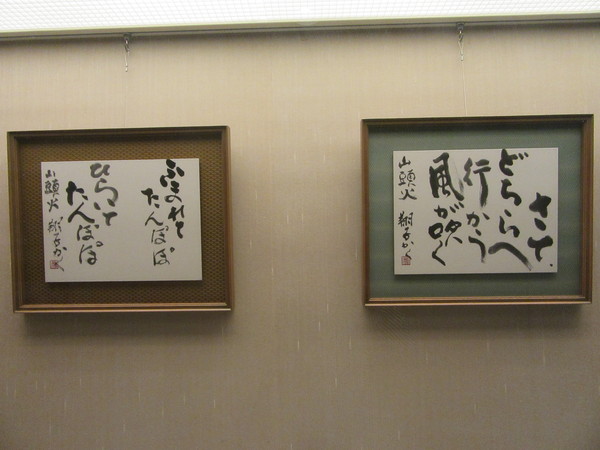 ふまれて
たんぽぽ
ひらいて
たんぽぽ
山頭火 翔子かく
さて、
どちらへ
行かう
風が吹く
山頭火 翔子かく